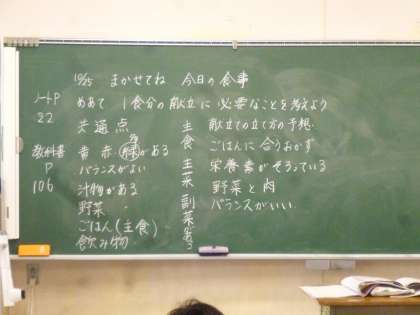 10/25 まかせてね 今日の食事
ノートP 22
めあて 1食分の献立に必要なことを考えよう
教科書 P 106
共通点
黄赤緑がある
バランスがよい
汁物がある
野菜
ごはん(主食)
飲み物
主食 主菜 副菜
献立ての立て方の予想
ごはんに合うおかず
栄養素がそろっている
野菜と肉
バランスがいい